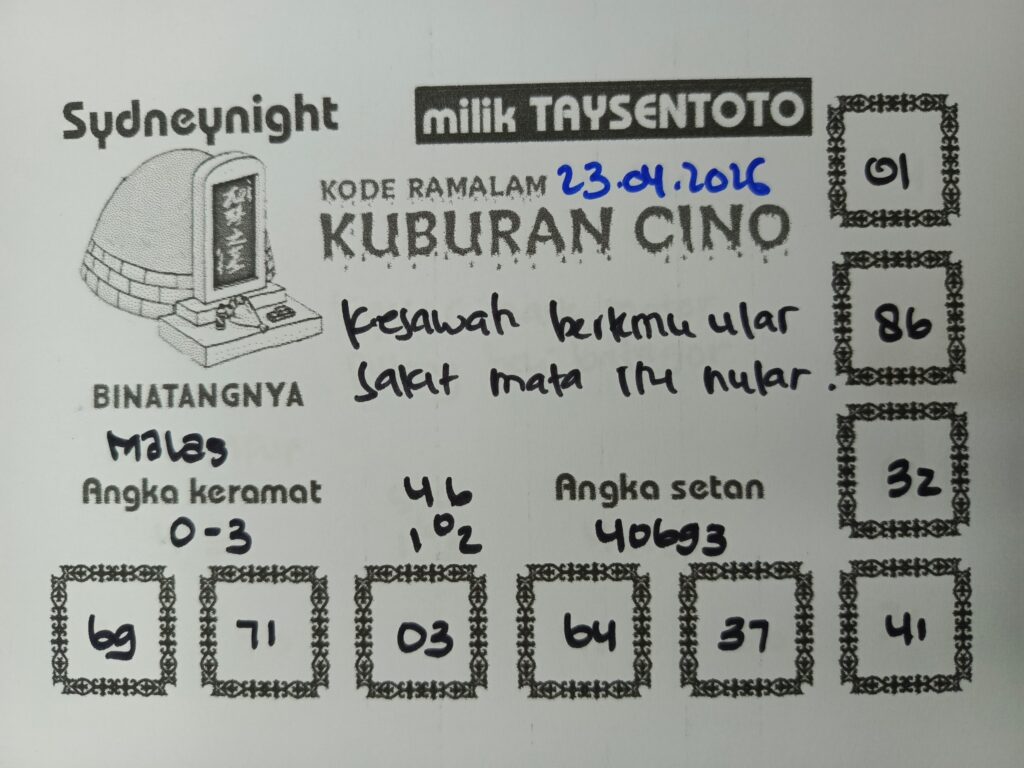 Sydneynight
milik TAYSENTOTO
KODE RAMALAM 23.04.2026
KUBURAN CINO
Kesawah berkmu ular
Sakit mata itu nular.
BINATANGNYA
Malas
Angka keramat
0-3
46
102
Angka setan
40693
01
86
32
69 71 03 64 37 41